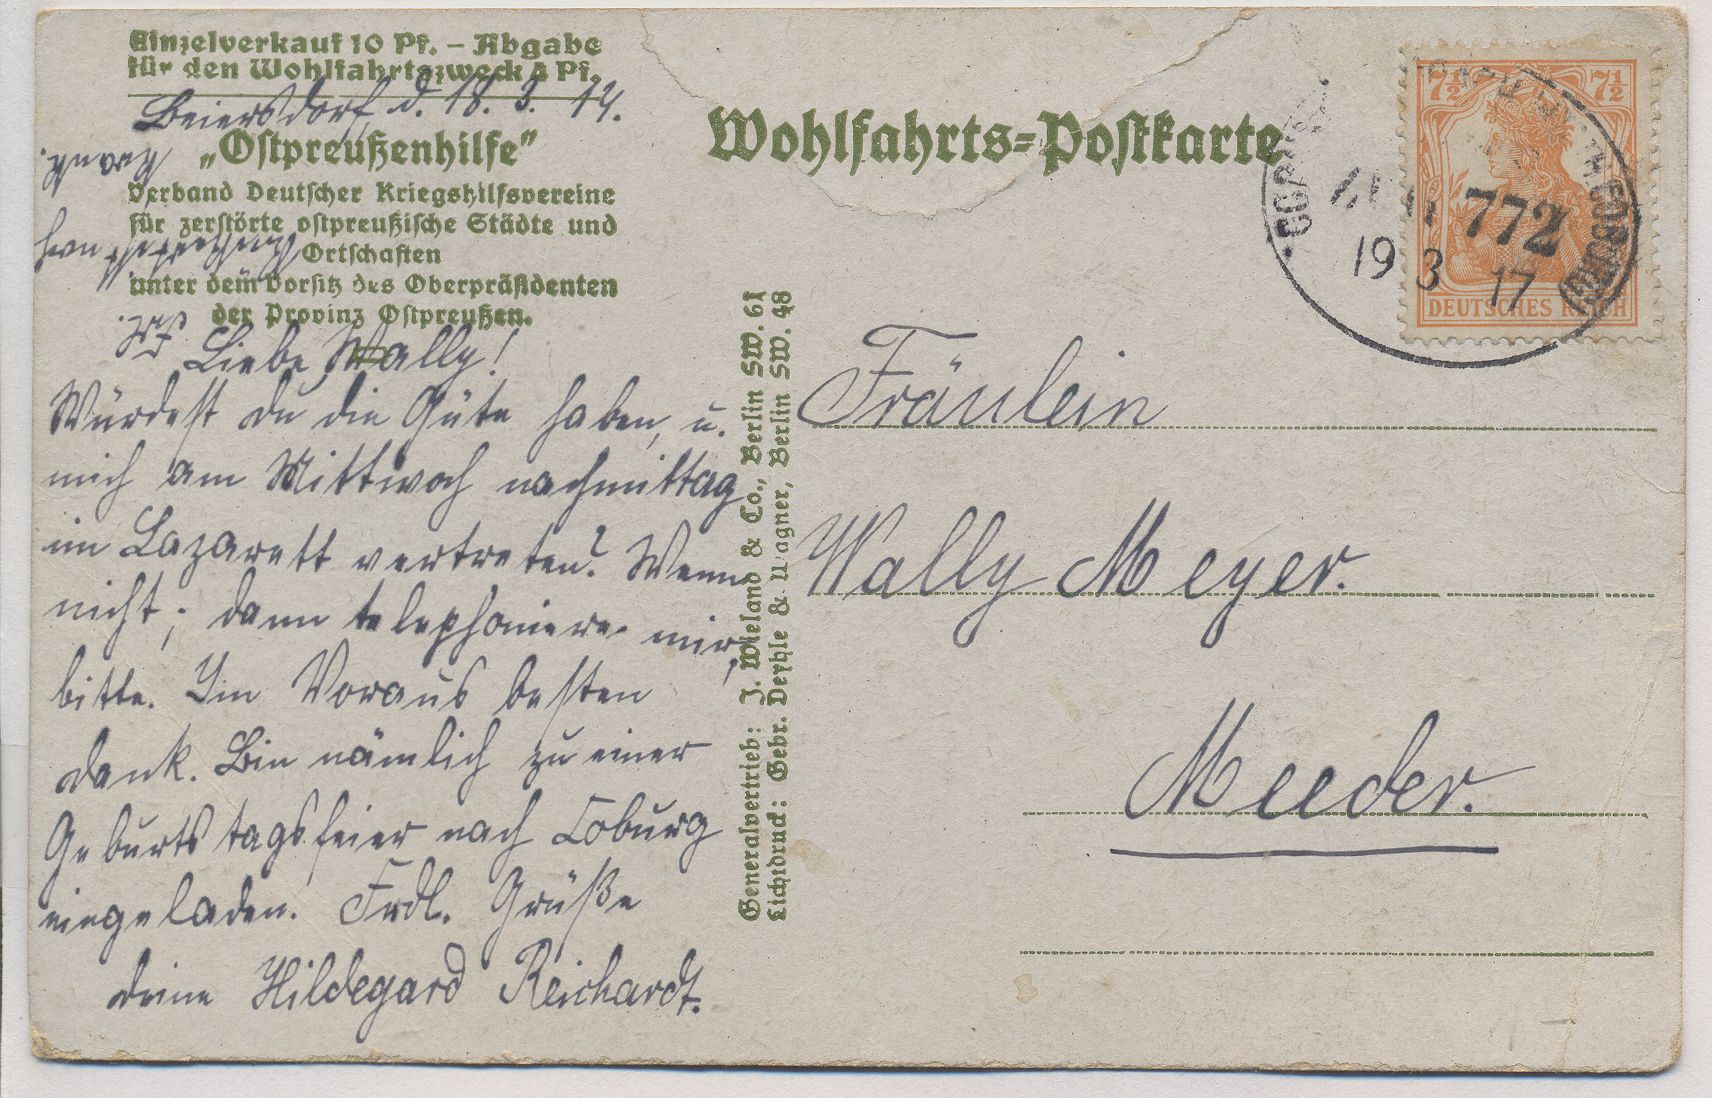 Einzelverkauf 10 Pf. – Abgabe
für den Wohlfahrtszweck 5 Pf.
Beiersdorf, d. 18. 3. 17.
„Ostpreußenhilfe"
Verband Deutscher Kriegshilfsvereine
für zerstörte ostpreußische Städte und
Ortschaften
unter dem Vorsitz des Oberpräsidenten
der Provinz Ostpreußen.
Liebe Wally!
Würdest du die Güte haben, u.
mich am Mittwoch nachmittag
im Lazarett vertreten? Wenn
nicht; dann telephoniere mir,
bitte. Im Voraus besten
Dank. Bin nämlich zu einer
Geburtstagsfeier nach Coburg
eingeladen. Frdl. Grüße
deine Hildegard Reichardt.
Generalvertrieb: J. Wieland & Co., Berlin SW. 61
Lichtdruck: Gebr. Deyhle & Wagner, Berlin SW. 48
Wohlfahrts-Postkarte
7½ 7½
DEUTSCHES REICH
772
19 3 17
Fräulein
Wally Meyer.
Meeder.